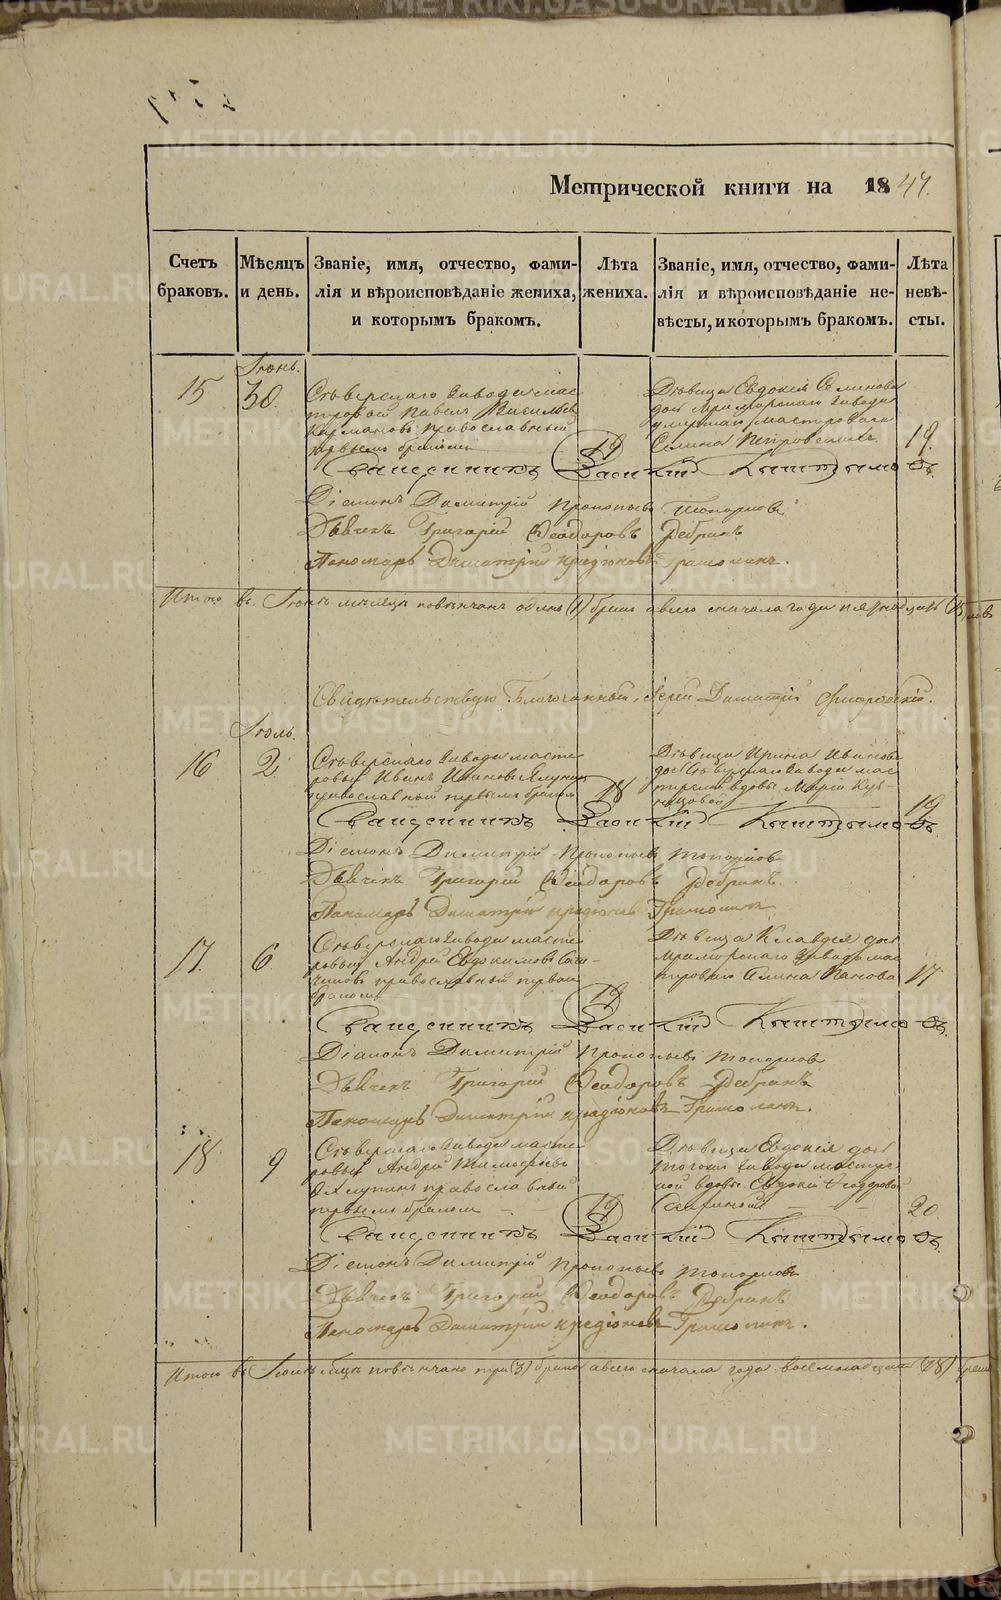 Метрической книги на 1847.
Счетъ браковъ.
Мѣсяцъ и день.
Званіе, имя, отчество, фами-
лія и вѣроисповѣданіе жениха,
и которымъ бракомъ.
Лѣта
жениха.
Званіе, имя, отчество, фами-
лія и вѣроисповѣданіе не-
вѣсты, и которымъ бракомъ.
Лѣта
невѣ-
сты.
Іюнь.
15
30
Сѣверскаго завода мас-
теровой Павелъ
православный
первымъ бракомъ
19
Дѣвица Евдокія Семенова
дочь Мраморскаго завода
умершаго мастероваго
Семена
19.
Священникъ Василій Кыштымовъ.
Діаконъ Димитрій Прокопьевъ Топорковъ
Дьячекъ Григорій Ѳеодоровъ Дебринъ
Пономарь Димитрій Грамолинъ.
Итого въ Іюнѣ мѣсяцѣ повѣнчанъ одинъ (1) бракъ а всего сначала года пятнадцать (15)
Свидѣтельствую Благочинный, Іерей Димитрій
Іюль.
16
2
Сѣверскаго завода масте-
ровый Иванъ Ивановъ
православный первымъ бракомъ
18
Дѣвица Ирина Иванова
дочь Сѣверскаго завода мас-
терской вдовы Маріи Куз-
нецовой
19
Священникъ Василій Кыштымовъ.
Діаконъ Димитрій Прокопьевъ Топорковъ
Дьячекъ Григорій Ѳеодоровъ Дебринъ
Пономарь Димитрій Грамолинъ
17.
6.
Сѣверскаго завода масте-
ровый Андрей Евдокимовъ
православный первымъ
бракомъ
19
Дѣвица Клавдія дочь
Мраморскаго завода мас-
тероваго Панова
17
Священникъ Василій Кыштымовъ.
Діаконъ Димитрій Прокопьевъ Топорковъ
Дьячекъ Григорій Ѳеодоровъ Дебринъ
Пономарь Димитрій Грамолинъ.
18
9
Сѣверскаго завода масте-
ровый Андрей Тимофѣевъ
православный
первымъ бракомъ
19
Дѣвица Евдокія дочь
того же завода мастерс-
кой вдовы Евдокіи Ѳеодоровой
20.
Священникъ Василій Кыштымовъ.
Діаконъ Димитрій Прокопьевъ Топорковъ
Дьячекъ Григорій Ѳеодоровъ Дебринъ
Пономарь Димитрій Грамолинъ.
Итого въ повѣнчано три (3) брака а всего сначала года восемнадцать (18)
METRIKI.GASO-URAL.RU